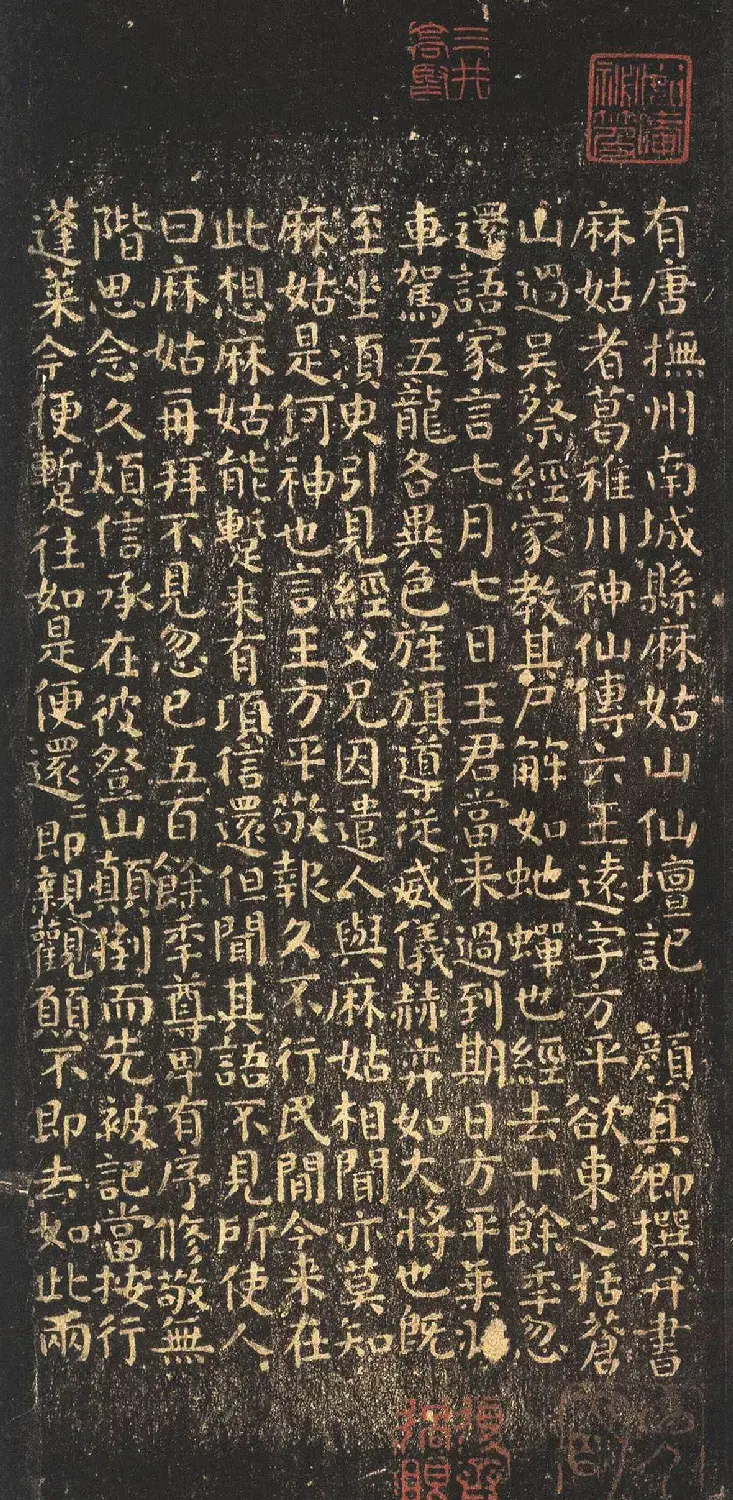 有唐撫州南城縣麻姑山仙壇記 顏真卿撰并書
麻姑者葛稚川神仙傳云王遠字方平欲東之括蒼
山過吳蔡經家教其尸解如虵蟬也經去十餘年忽
還語家言七月七日王君當来過到期日方平乗
車駕五龍各異色旌旗導従威儀赫弈如大將也既
至坐湏臾引見經父兄因遣人與麻姑相聞亦莫知
麻姑是何神也言王方平敬報久不行民間今来在
此想麻姑能蹔来有頃信還但聞其語不見所使人
曰麻姑再拜不見忽已五百餘年尊卑有序修敬無
階思念久煩信承在彼登山顛倒而先被記當按行
蓬萊今便蹔往如是便還=即親觀願不即去如此兩